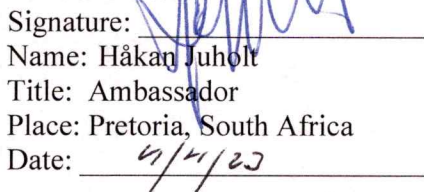 Signature:
Name: Håkan Juholt
Title: Ambassador
Place: Pretoria, South Africa
Date: